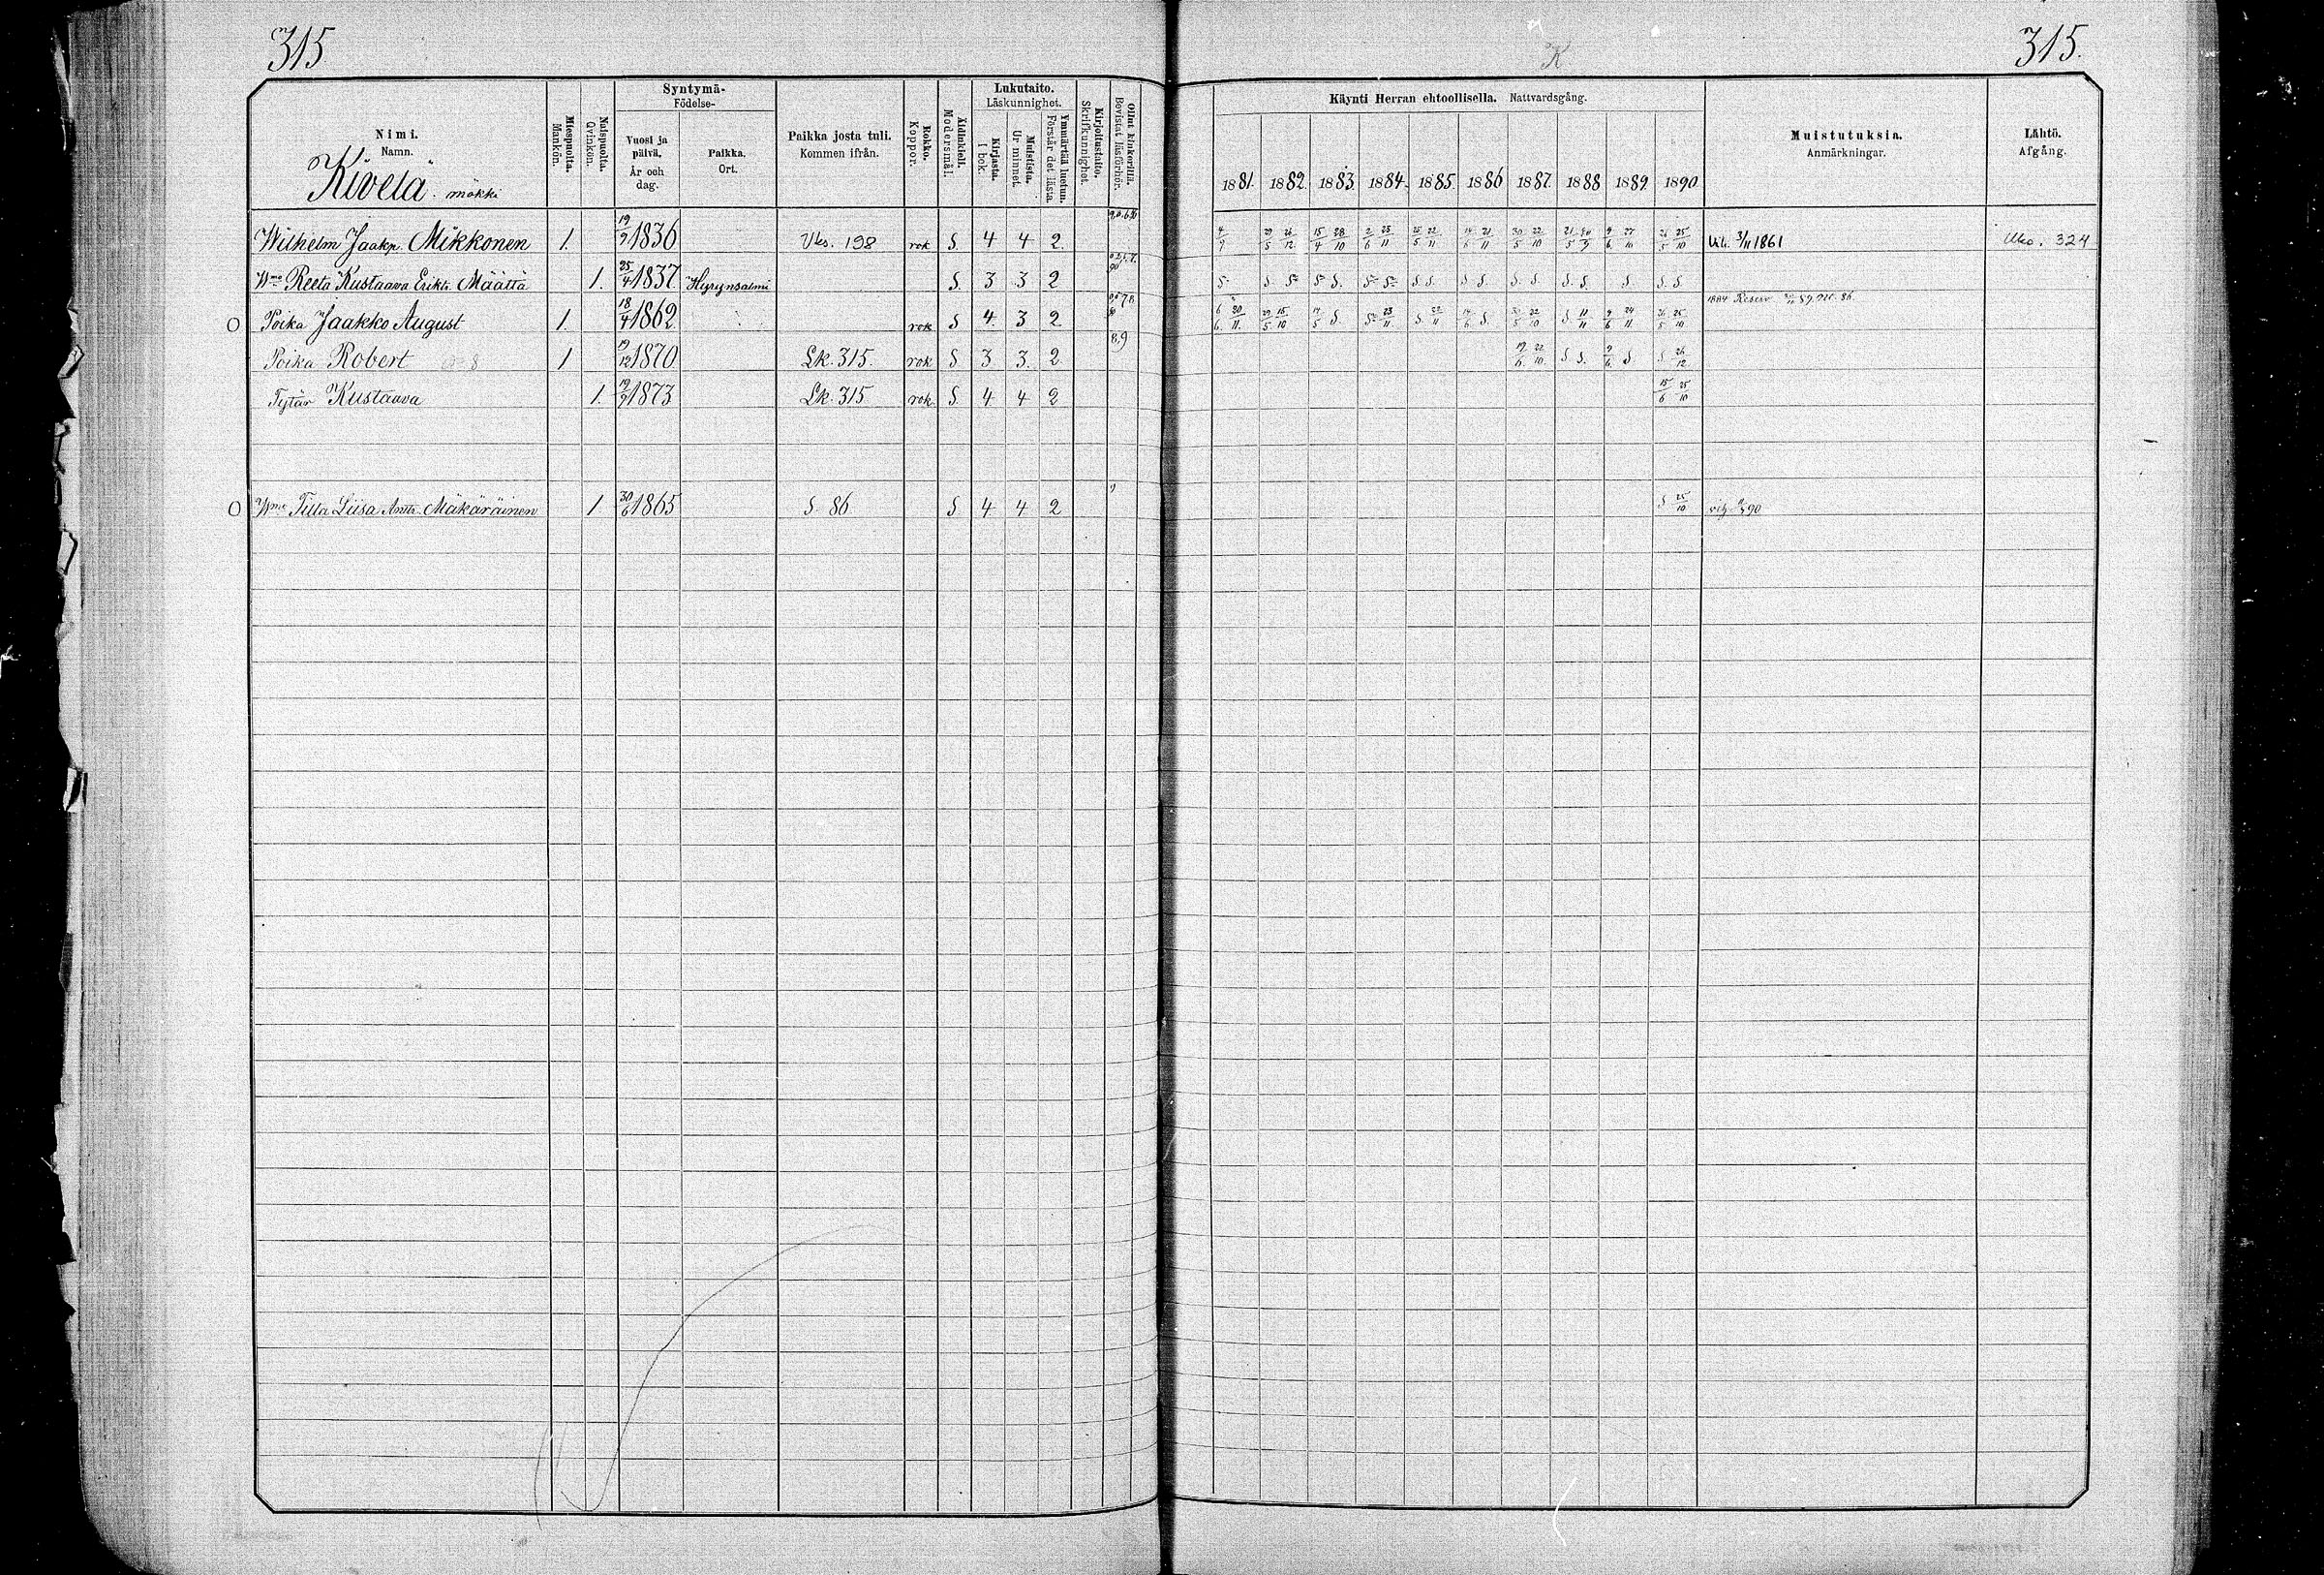 315
K
315.
Nimi.
Namn.
Kivelä mökki
Miespuolta.
Mankön.
Naispuolta.
Qvinkön.
Syntymä-
Födelse-
Vuosi ja päivä.
År och dag.
Paikka.
Ort.
Paikka josta tuli.
Kommen ifrån.
Rokko.
Koppor.
Äidinkieli.
Modersmål.
Lukutaito.
Läskunnighet.
Kirjasta.
I bok.
Muistista.
Ur minnet.
Ymmärtää luetun.
Förstår det lästa.
Kirjoitustaito.
Skrifkunnighet.
Ollut kinkerillä.
Bevistat läsförhör.
Käynti Herran ehtoollisella. Nattvardsgång.
1881. 1882. 1883. 1884. 1885. 1886 1887. 1888 1889 1890
Muistutuksia.
Anmärkningar.
Lähtö.
Afgång.
Wilhelm Jaakp. Mikkonen 1. 19/9 1836 Uks. 198 rok S 4 4 2 4/9 29/5 26/12 15/4 28/10 2/6 23/11 25/5 22/11 14/6 21/11 30/5 22/10 9/6 27/10 26/5 25/10 Vih. 3/11 1861 Uko. 324
Wmo Reeta Kustaava Erikt. Määttä 1. 25/4 1837. Hyrynsalmi S. 3 3 2 S. S. S. S. S. S. S. S. S. S. S. S. S. S. S. S. S. S.
O Poika Jaakko August 1. 18/4 1862 rok S 4 3 2 6/6. 30/11. 29/5 15/10 14/5 S 23/11 S 22/11 14/6 S. 30/5 22/10 S 11/11 9/6 24/11 26/5 25/10 1884 Reserv
Poika Robert 1 19/12 1870 Lk. 315. rok S 3 3. 2 89 19/6 22/10. S S. 9/6 S S 26/12
Tytär Kustaava 1. 19/9 1873 Lk. 315 rok S 4 4 2 15/6 25/10
O Wmo Tilta Liisa Antt. Mäkäräinen 1 30/6 1865 S 86 S 4 4 2 S 25/10 vih 90